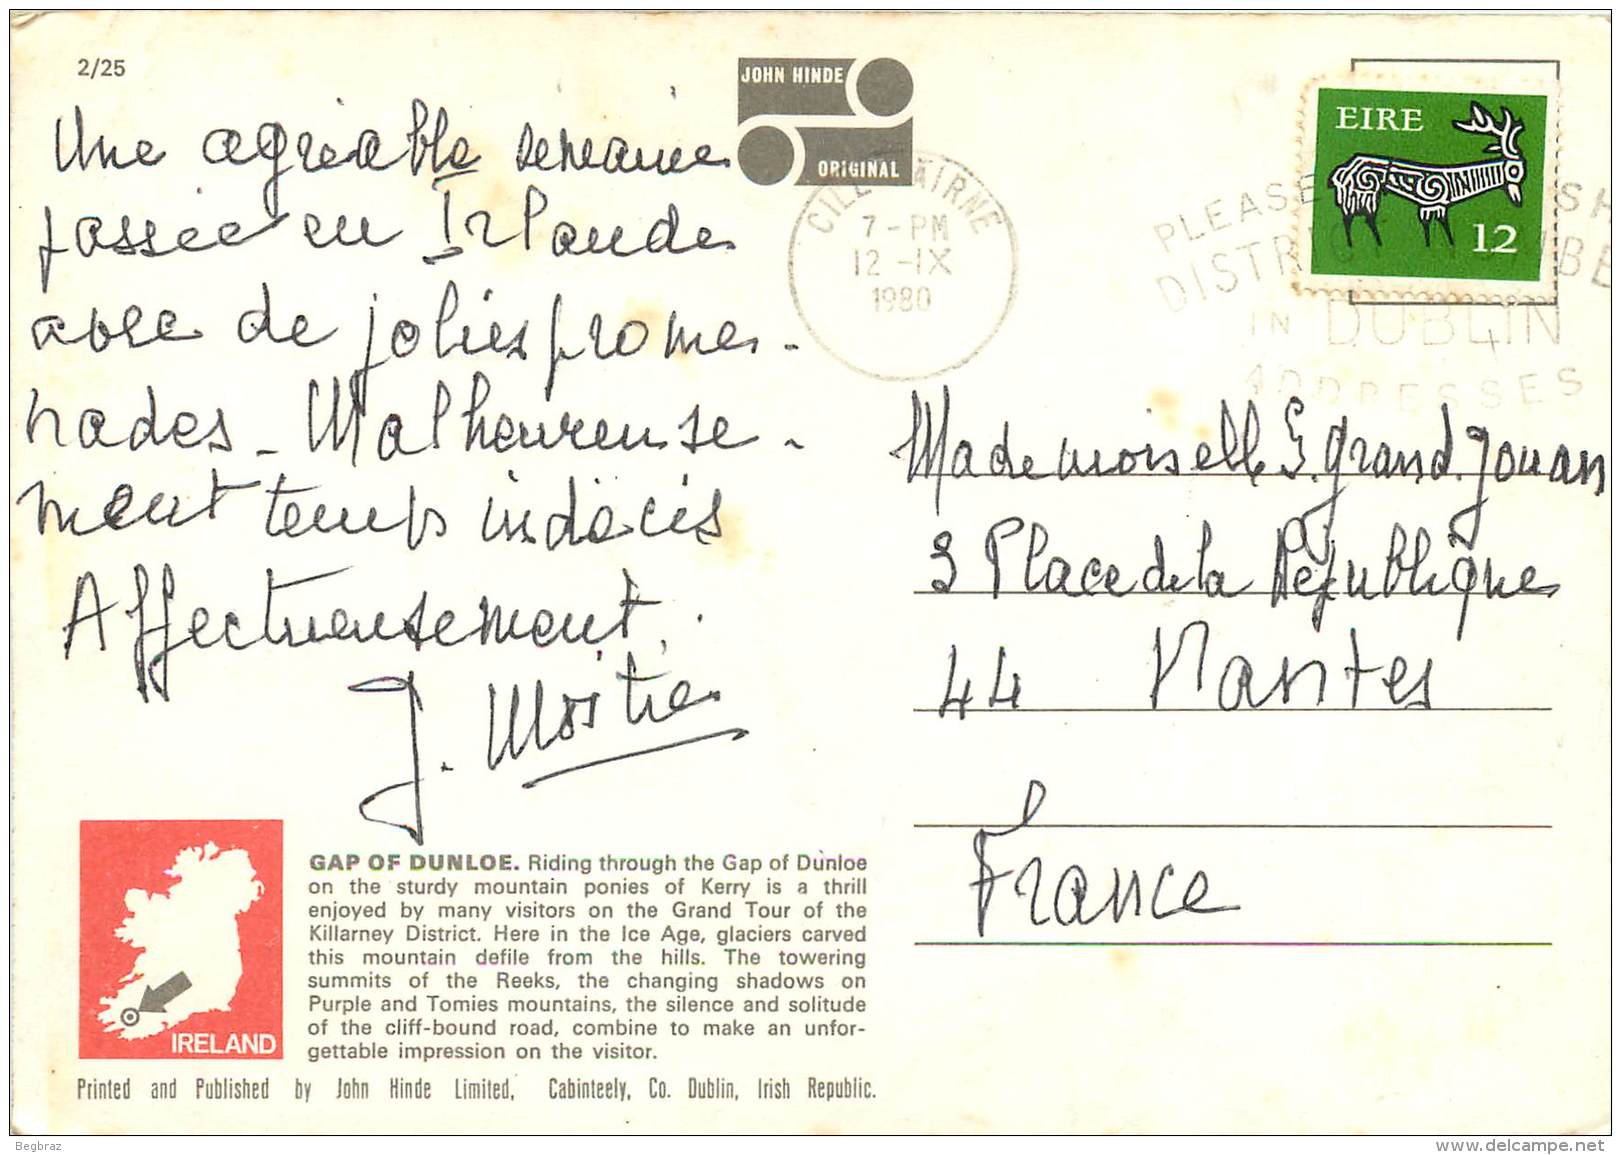 2/25
JOHN HINDE
ORIGINAL
Une agréable semaine
passée en Irlande
avec de jolies prome-
nades - Malheureuse-
ment temps indécis
Affectueusement.
J. Mostie
CILL AIRNE
7-PM
12-IX
1980
EIRE
12
PLEASE
SH
DISTRICT
BE
IN DUBLIN
ADDRESSES
Mademoiselle S. grand.jouan
3 Place de la République
44 Nantes
France
IRELAND
GAP OF DUNLOE. Riding through the Gap of Dunloe
on the sturdy mountain ponies of Kerry is a thrill
enjoyed by many visitors on the Grand Tour of the
Killarney District. Here in the Ice Age, glaciers carved
this mountain defile from the hills. The towering
summits of the Reeks, the changing shadows on
Purple and Tomies mountains, the silence and solitude
of the cliff-bound road, combine to make an unfor-
gettable impression on the visitor.
Printed and Published by John Hinde Limited, Cabinteely, Co. Dublin, Irish Republic.
Begbraz
www.delcampe.net